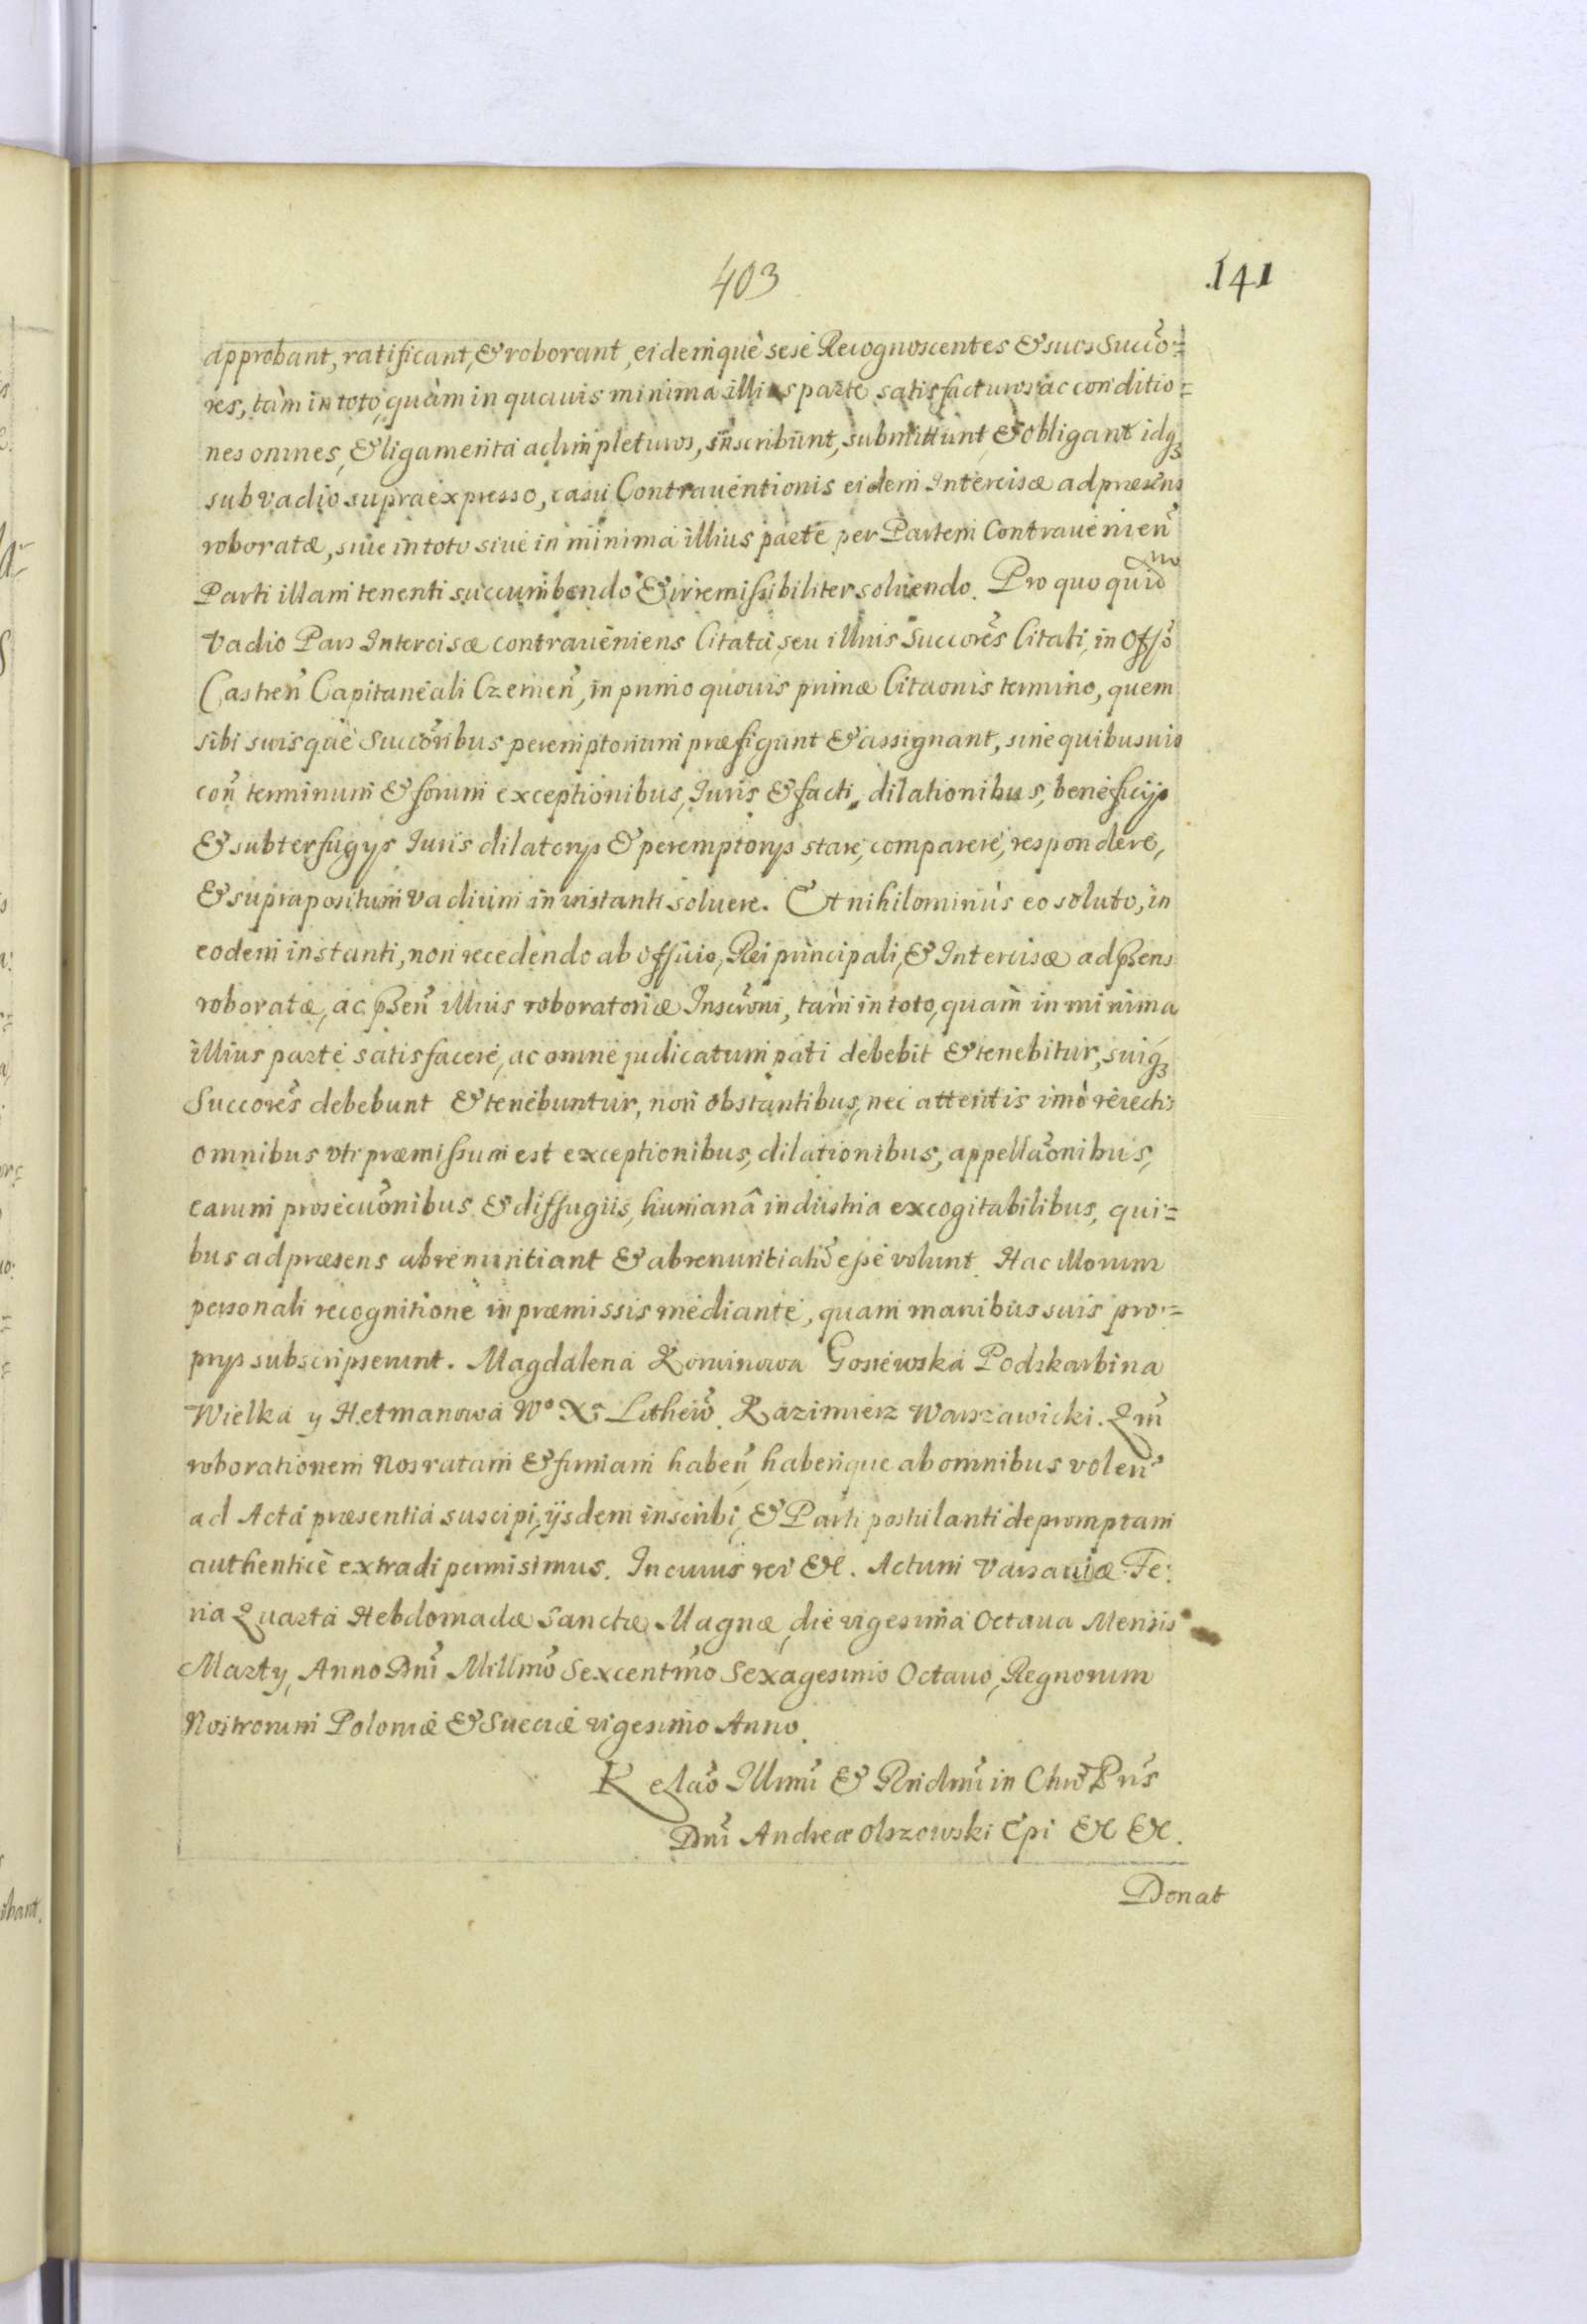 403
141
approbant, ratificant, & roborant, eidemquè sese Recognoscentes & suos Succo͂=
res, tàm in toto, quàm in quauis minima illius parte satisfacturos ac conditio=
nes omnes, & ligamenta adimpleturos, inscribunt, submittunt & obligant idq3
sub vadio supra expresso, casu Contrauentionis eidem Intercisæ ad præsens
roboratæ, siue in toto siue in minima illius parte per Partem Contrauenien͂
Parti illam tenenti succumbendo & irremissibiliter soluendo. Pro quo quidmo
Vadio Pars Intercisæ contraueniens Citata, seu illius Succore͂s Citati, in Offo͂
Castren͂ Capitaneali Czernen͂, in primo quouis primæ Citaonis termino, quem
sibi suisquè Succo͂ribus peremptorium præfigunt & assignant, sine quibusuis
con͂ terminum & forum exceptionibus, Iuris & facti, dilationibus, beneficijs
& subterfugys Iuris dilatorys & peremptorys stare, comparere, respondere,
& suprapositum Vadium in instanti soluere. Et nihilominùs eo soluto, in
eodem instanti, non recedendo ab officio, Rei principali, & Intercisæ ad p͂sens
roboratæ, ac p͂sen͂ illius roboratoriæ Inscro͂ni, tàm in toto, quàm in minima
illius parte satisfacere, ac omne judicatum pati debebit & tenebitur, suiq3
Succore͂s debebunt & tenebuntur, non obstantibus, nec attentis imò reiectis
omnibus vti præmissum est exceptionibus, dilationibus, appella͂onibus,
earum prosecu͂onibus & diffugiis, humanâ industria excogitabilibus, qui=
bus ad præsens abrenuntiant & abrenuntiatu͂ esse volunt. Hac illorum
personali recognitione in præmissis mediante, quam manibus suis pro=
prys subscripserunt. Magdalena Korwinowa Gosiewska Podskarbina
Wielka y Hetmanowa Wo Xa Lithew͂. Kazimierz Warszawicki. Qm͂
roborationem Nos ratam & firmam haben͂, haberique ab omnibus volen͂
ad Acta præsentia suscipi, ijsdem inscribi, & Parti postulanti depromptam
authenticè extradi permisimus. In cuius rei &c. Actum Varsauiæ Fe:
ria Quarta Hebdomadæ Sanctæ Magnæ, die vigesima Octaua Mensis
Marty, Anno Dni͂ Millmo͂ Sexcentmo͂ Sexagesimo Octauo, Regnorum
Nostrorum Poloniæ & Sueciæ vigesimo Anno.
Rela͂o Illmi͂ & Rndmi͂ in Chro͂ Pri͂s
Dni͂ Andreæ Olszowski Epi &c &c.
Donat